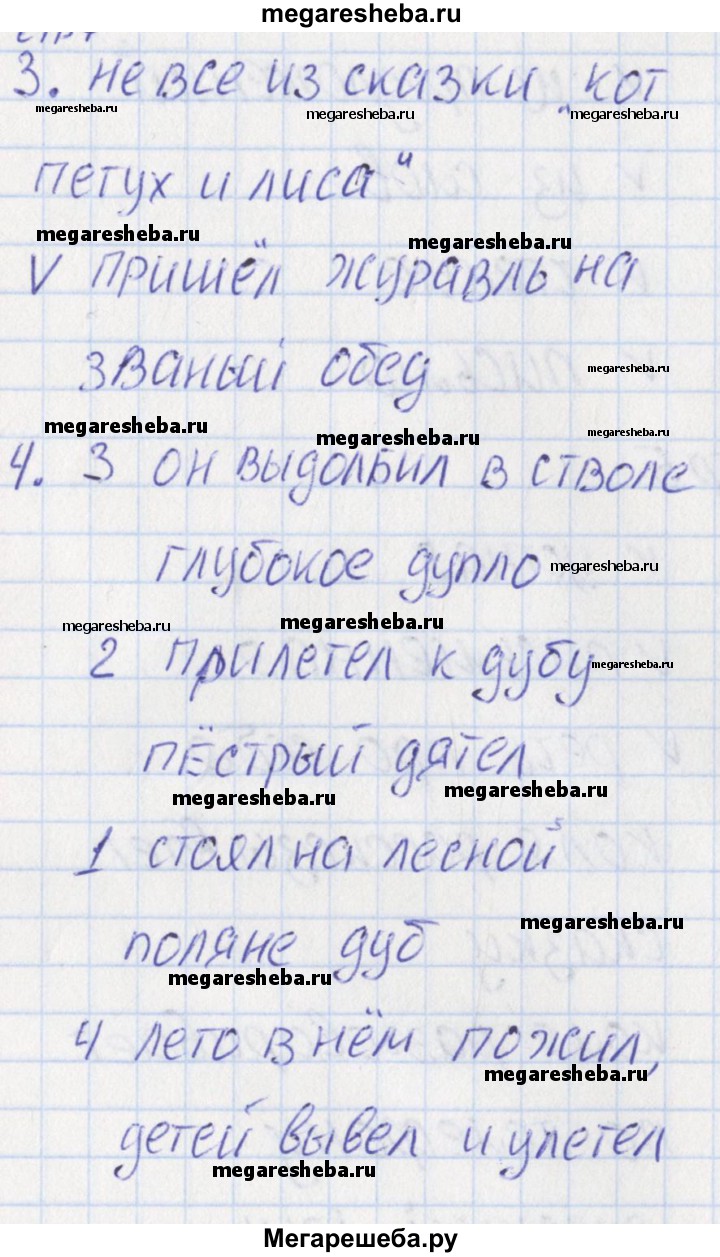 megaresheba.ru
3. не все из сказки „кот
megaresheba.ru megaresheba.ru megaresheba.ru
петух и лиса"
megaresheba.ru megaresheba.ru
V пришёл журавль на
званый обед megaresheba.ru
megaresheba.ru megaresheba.ru megaresheba.ru
4. 3 он выдолбил в стволе
глубокое дупло megaresheba.ru
megaresheba.ru megaresheba.ru
2 прилетел к дубу megaresheba.ru
пёстрый дятел
megaresheba.ru megaresheba.ru
1 стоял на лесной
megaresheba.ru
поляне дуб
megaresheba.ru
4 лето в нём пожил,
megaresheba.ru
детей вывел и улетел
megaresheba.ru
Мегарешеба.ру